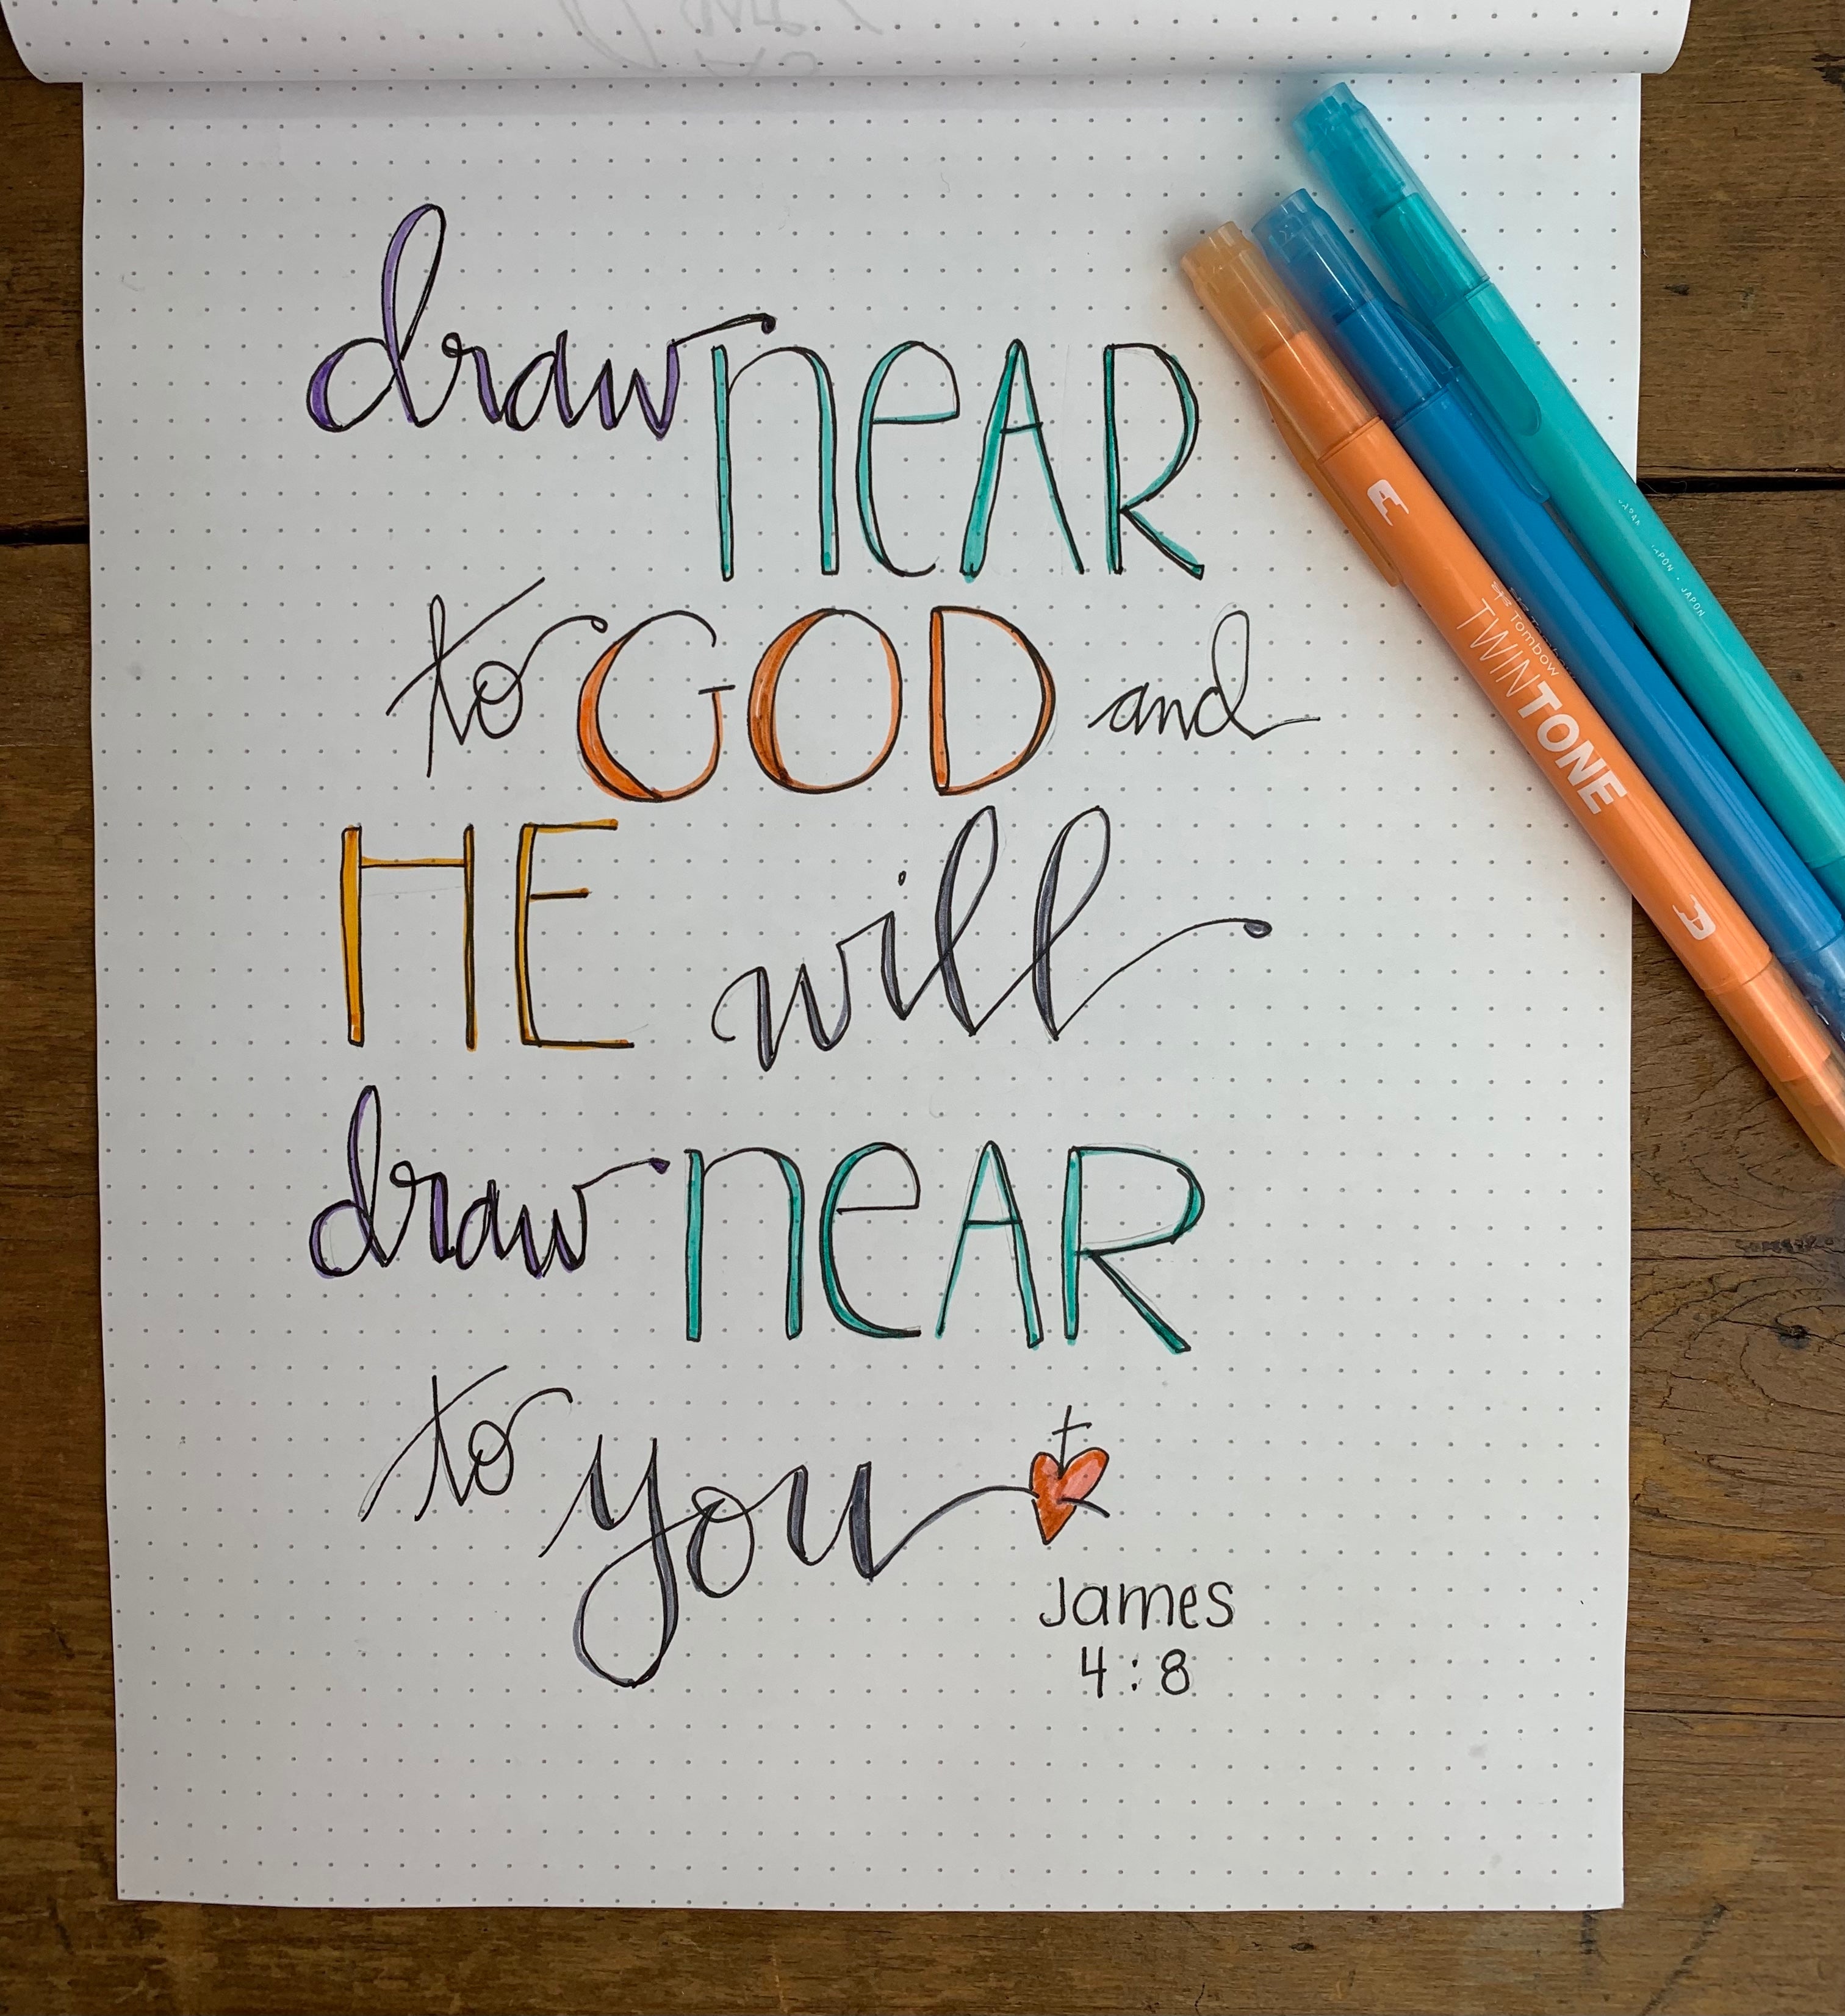 draw neAR
to GOD and
HE will
draw neAR
to you
James
4:8
Tombow
TWINTONE
JAPAN
JAPON · JAPON